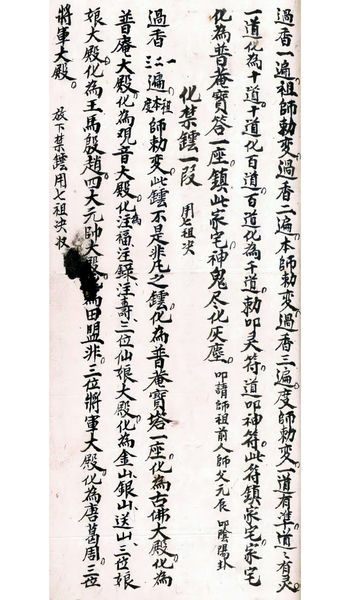 過香一遍。祖師勅变。過香二遍。本師勅变。過香三遍。度師勅变。一道有準。道〻有灵。
一道化為十道。十道化百道。百道化為千道。勅叩灵符。道叩神符。此符鎮家宅。家宅
化為普庵寳答一座。鎮此家宅。神鬼尽化灰塵。叩請師祖前人師父元辰 叩陰陽卦
化禁鐔一段 用七祖决
過香一二三遍。祖本度師勅变。此鐔不是非凡之鐔。化為普庵寳塔一座。化為古佛大殿。化為
普庵大殿。化為观音大殿。化為注福注錄注壽三位仙娘大殿。化為金山、銀山、送山、三位娘
娘大殿。化為王馬殷趙四大元帥大殿。為田盟非三位將軍大殿。化為唐葛周三位
將軍大殿。 放下禁鐔用七祖决收